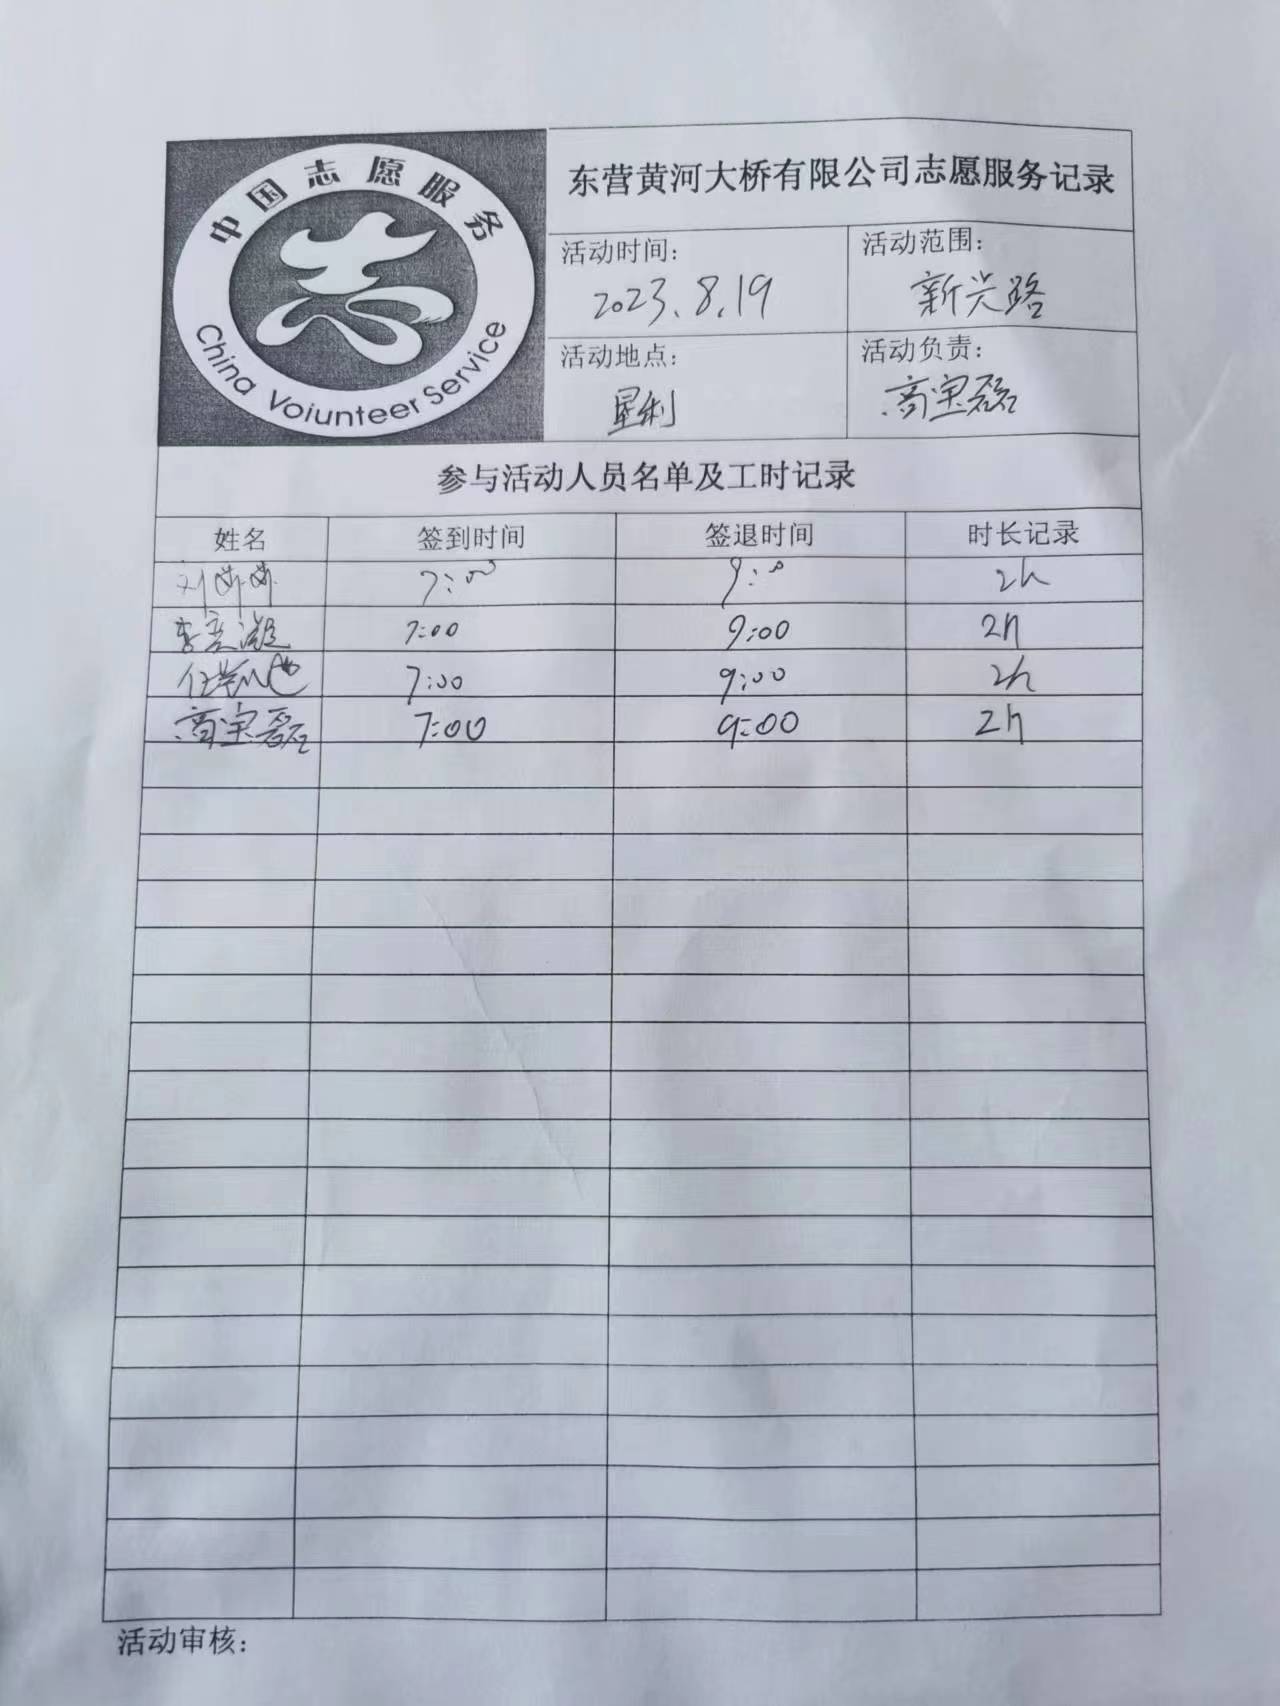 中国志愿服务
China Voiunteer Service
东营黄河大桥有限公司志愿服务记录
活动时间：
2023.8.19
活动范围：
新兴路
活动地点：
垦利
活动负责：
商宝磊
参与活动人员名单及工时记录
姓名 签到时间 签退时间 时长记录
刘 7:00 9:00 2h
李 7:00 9:00 2h
任凯 7:00 9:00 2h
商宝磊 7:00 9:00 2h
活动审核：